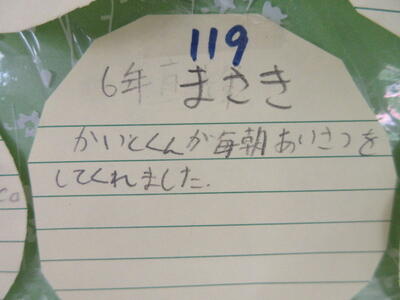 119
6年 まさき
かいとくんが毎朝あいさつを
してくれました.
co